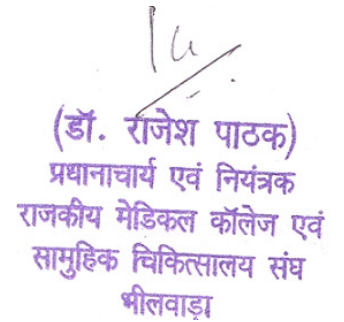 (डॉ. राजेश पाठक)
प्रधानाचार्य एवं नियंत्रक
राजकीय मेडिकल कॉलेज एवं
सामुहिक चिकित्सालय संघ
भीलवाड़ा